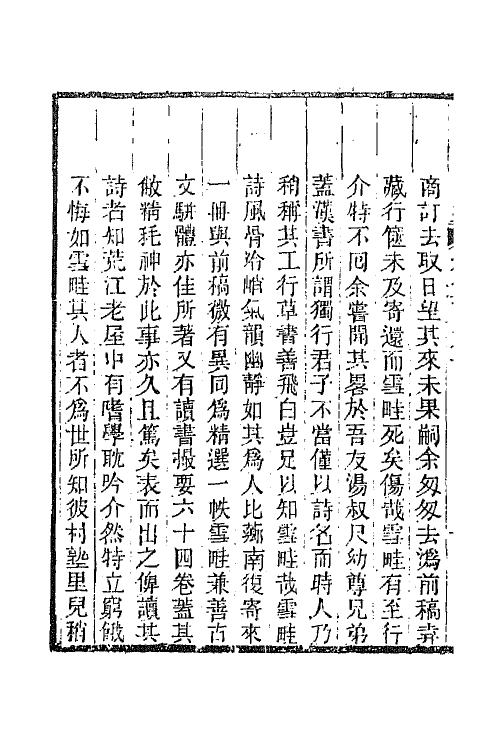 商訂去取日望其來未果嗣余匆匆去潙前稿弆
藏行篋未及寄還而雪畦死矣傷哉雪畦有至行
介特不囘余嘗聞其畧於吾友湯叔尺幼尊兄弟
蓋漢書所謂獨行君子不當僅以詩名而時人乃
稍稱其工行草書善飛白豈足以知雪畦哉雪畦
詩風骨冷峭氣韻幽靜如其爲人比薌南復寄來
一冊與前稿微有異同爲精選一帙雪畦兼善古
文駢體亦佳所著又有讀書撮要六十四卷蓋其
敝精耗神於此事亦久且篤矣表而出之俾讀其
詩者知荒江老屋中有嗜學耽吟介然特立窮餓
不悔如雪畦其人者不爲世所知彼村塾里兒稍